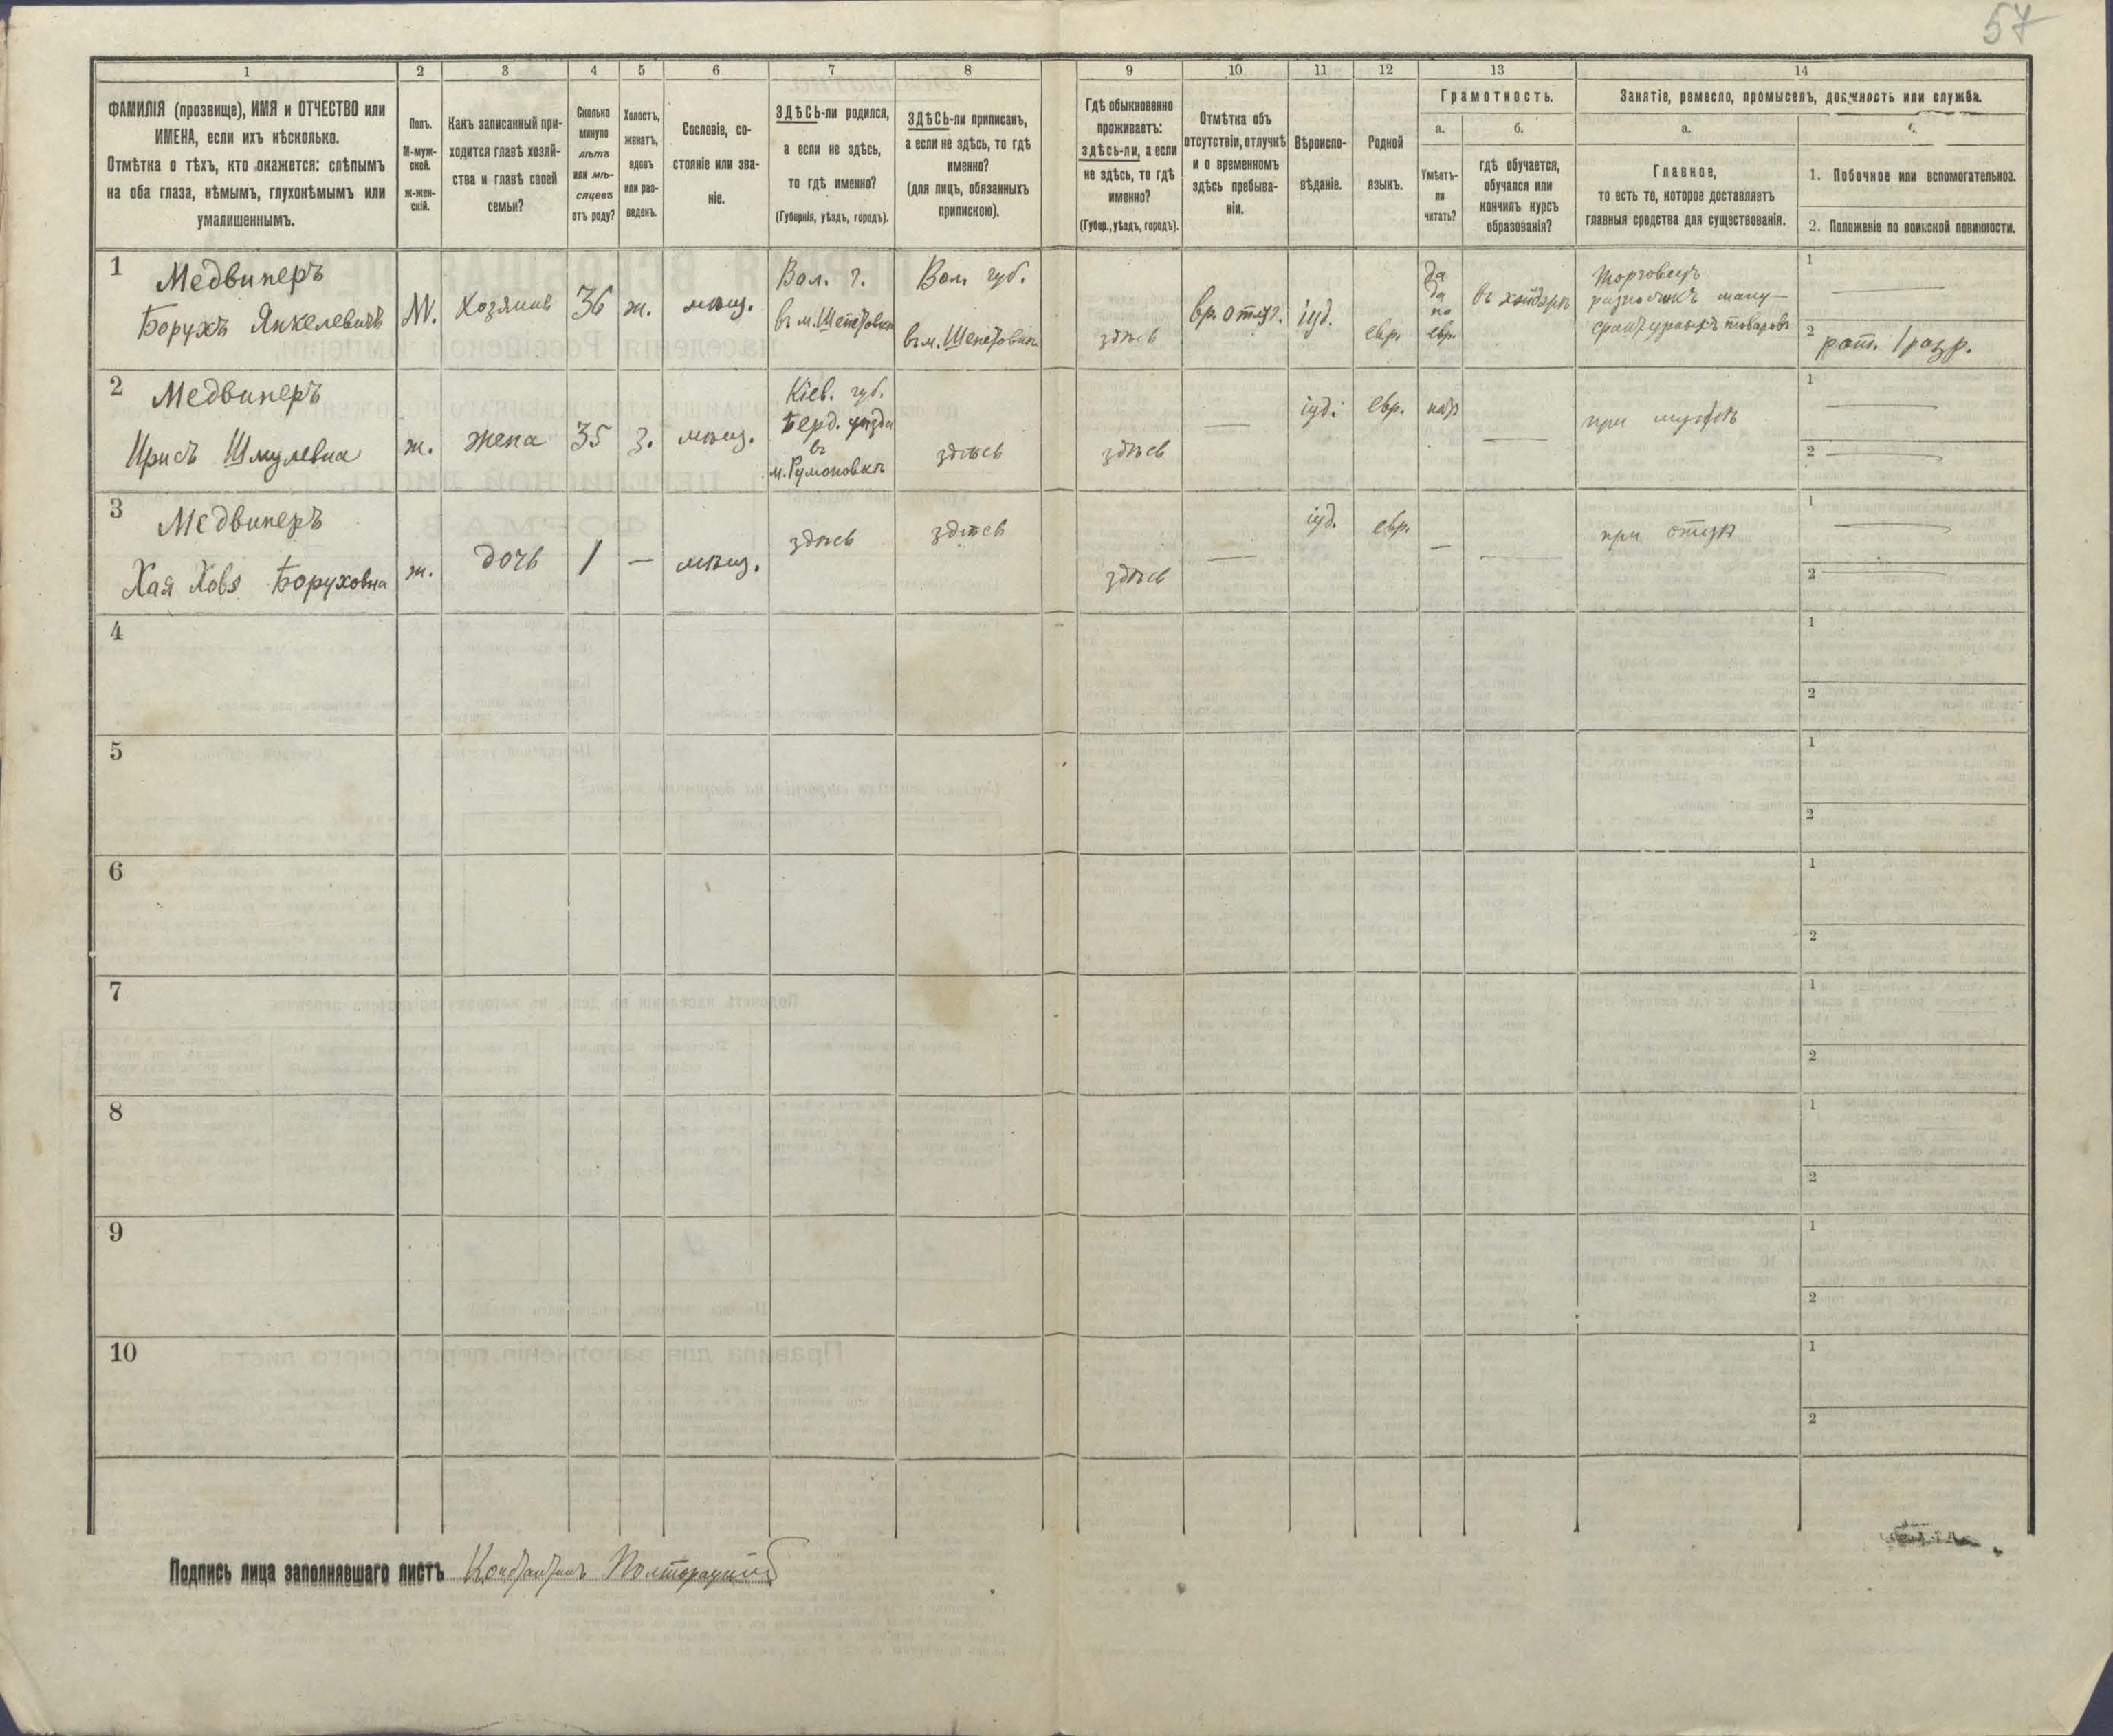 57
1 2 3 4 5 6 7 8 9 10 11 12 13 14
ФАМИЛІЯ (прозвище), ИМЯ и ОТЧЕСТВО или
ИМЕНА, если ихъ нѣсколько.
Отмѣтка о тѣхъ, кто окажется: слѣпымъ
на оба глаза, нѣмымъ, глухонѣмымъ или
умалишеннымъ.
Полъ.
М-муж-
ской.
ж-жен-
скій.
Какъ записанный при-
ходится главѣ хозяй-
ства и главѣ своей
семьи?
Сколько
минуло
лѣтъ
или мѣ-
сяцевъ
отъ роду?
Холостъ,
женатъ,
вдовъ
или раз-
веденъ.
Сословіе, со-
стояніе или зва-
ніе.
ЗДѢСЬ-ли родился,
а если не здѣсь,
то гдѣ именно?
(Губернія, уѣздъ, городъ).
ЗДѢСЬ-ли приписанъ,
а если не здѣсь, то гдѣ
именно?
(для лицъ, обязанныхъ
припискою).
Гдѣ обыкновенно
проживаетъ:
здѣсь-ли, а если
не здѣсь, то гдѣ
именно?
(Губер., уѣздъ, городъ).
Отмѣтка объ
отсутствіи, отлучкѣ
и о временномъ
здѣсь пребыва-
ніи.
Вѣроиспо-
вѣданіе.
Родной
языкъ.
Грамотность.
а.
Умѣетъ-
ли
читать?
б.
гдѣ обучается,
обучался или
кончилъ курсъ
образованія?
Занятіе, ремесло, промыселъ, должность или служба.
а.
Главное,
то есть то, которое доставляетъ
главныя средства для существованія.
1. Побочное или вспомогательное.
2. Положеніе по воинской повинности.
1
Медвинеръ
Борухъ Янкелевичъ
М.
Хозяинъ
36
ж.
мѣщ.
Вол. г.
въ м. Шепетовкѣ
Вол. губ.
въ м. Шепетовкѣ
здѣсь
вр. отлуч.
іуд.
евр.
да
по
евр.
въ хейдерѣ
Торговецъ
разносчикъ ману-
фактурныхъ товаровъ
1
2 рат. 1 разр.
2
Медвинеръ
Ирисъ Шмулевна
ж.
жена
35
з.
мѣщ.
Кіев. губ.
Берд. уѣзда
въ
здѣсь
здѣсь
іуд.
евр.
нѣт
при мужѣ
1
2
3
Медвинеръ
Хая Хова Боруховна
ж.
дочь
1
—
мѣщ.
здѣсь
здѣсь
здѣсь
іуд.
евр.
при отцѣ
1
2
4
1
2
5
1
2
6
1
2
7
1
2
8
1
2
9
1
2
10
1
2
Подпись лица заполнявшаго листъ Константинъ Полторацкій